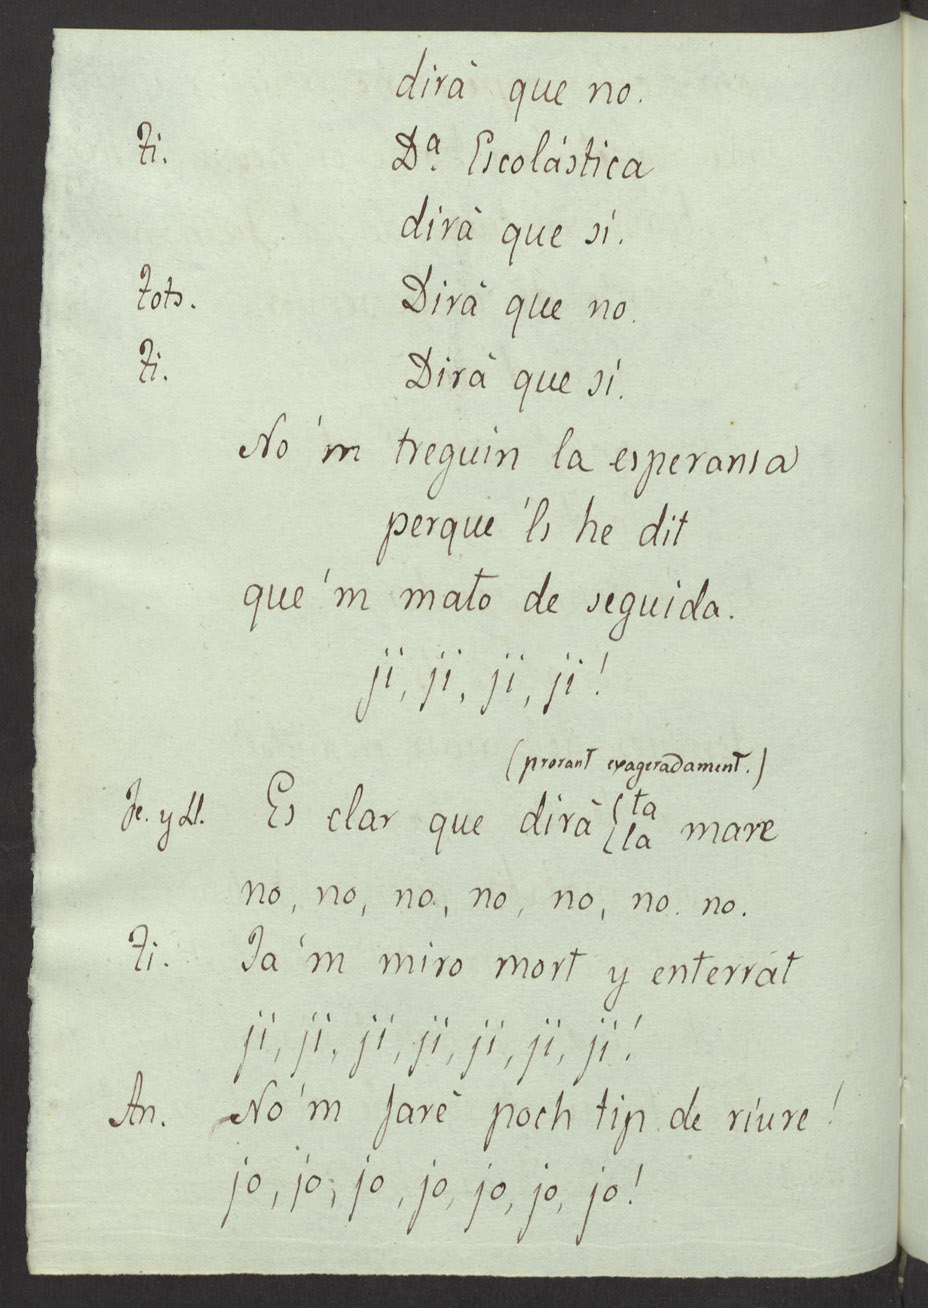 dirà que no.
Ti. Dª Escolástica
dirà que sí.
Tots. Dirà que no.
Ti. Dirà que sí.
No 'm treguin la esperansa
perque 'ls he dit
que 'm mato de seguida.
ji, ji, ji, ji!
(prorant exageradament.)
Je. y Ll. Es clar que dirà { ta
{ la mare
no, no, no, no, no, no. no.
Ti. Ja 'm miro mort y enterrat
ji, ji, ji, ji, ji, ji, ji!
An. No 'm faré poch tip de riure!
jo, jo, jo, jo, jo, jo, jo!